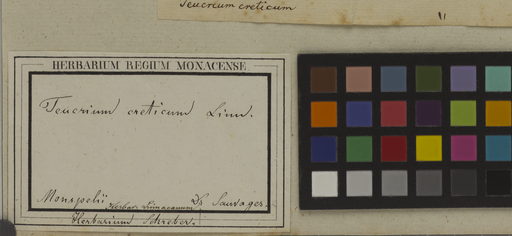 Teucrium creticum
HERBARIUM REGIUM MONACENSE
Teucrium creticum Linn.
Monspelii Ds Sauvages.
Herbar. Linnaeanum
Herbarium Schreber.